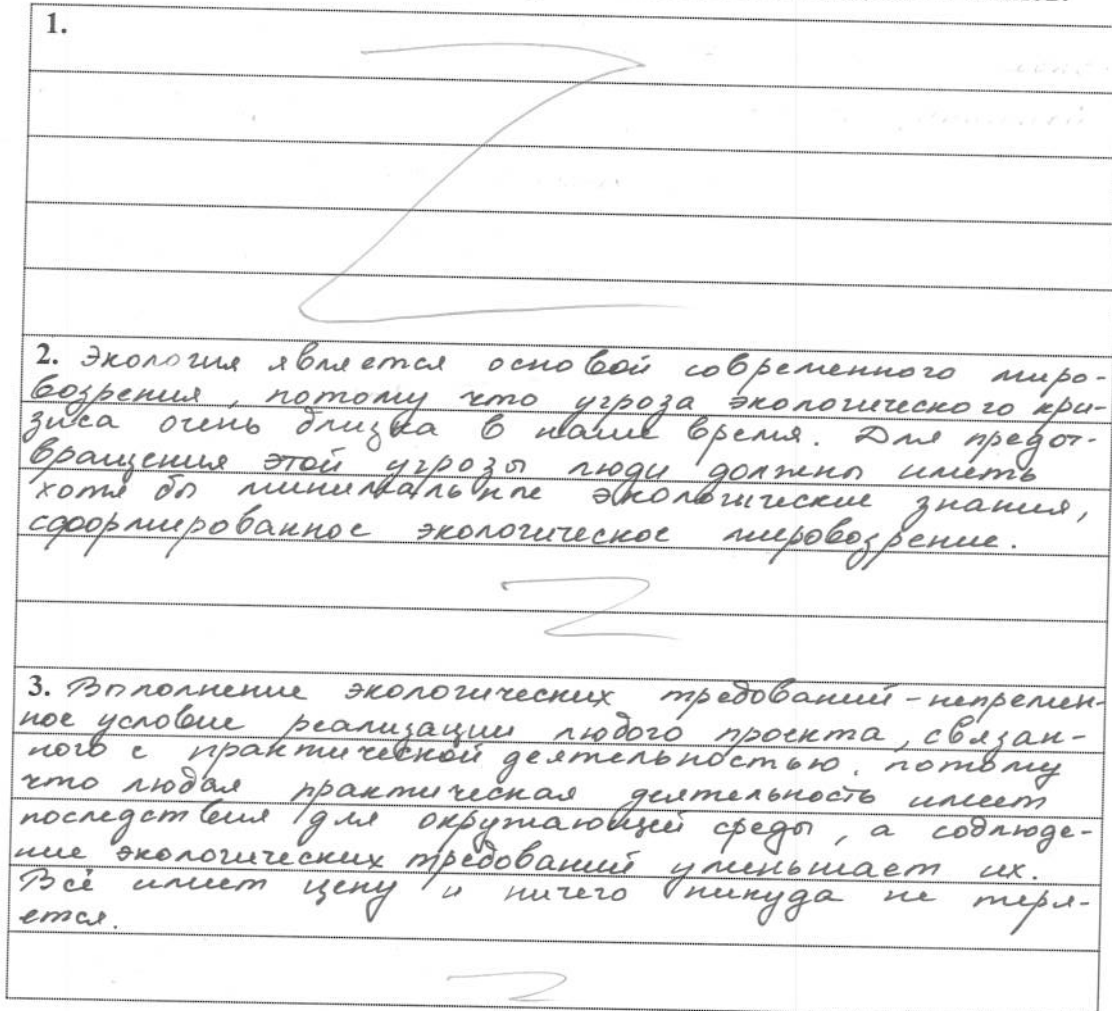 1.
2. Экология является основой современного миро-
возрения, потому что угроза экологического кри-
зиса очень близка в наше время. Для предот-
вращения этой угрозы люди должны иметь
хотя бы минимальные экологические знания,
сформированное экологическое мировозрение.
3. Выполнение экологических требований - непремен-
ное условие реализации любого проекта, связан-
ного с практической деятельностью, потому
что любая практическая деятельность имеет
последствия для окружающей среды, а соблюде-
ние экологических требований уменьшает их.
Всё имеет цену и ничего никуда не теря-
ется.